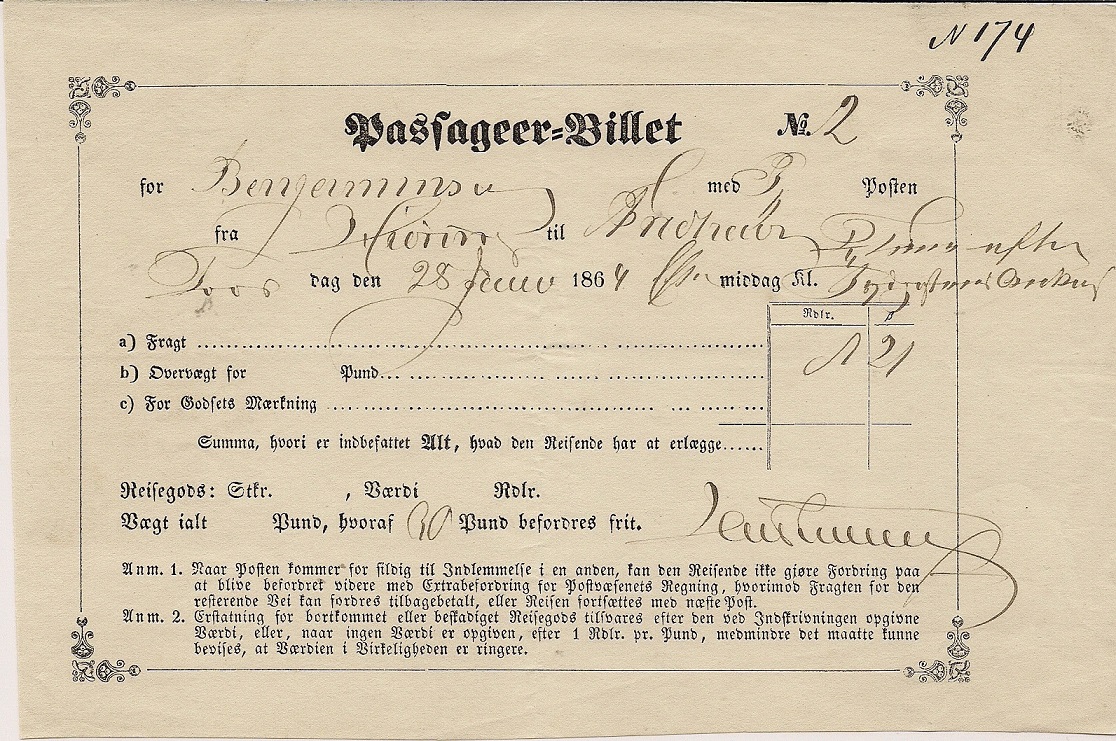 N 174
Passageer-Billet No. 2
for Benjaminsen med P. Posten
fra Hiörring til
Tors dag den 28 Janu 1864 Efter middag Kl.
Rdlr. ß
a) Fragt 1 21
b) Overvægt for Pund
c) For Godsets Mærkning
Summa, hvori er indbefattet Alt, hvad den Reisende har at erlægge
Reisegods: Stkr. , Værdi Rdlr.
Vægt ialt Pund, hvoraf 30 Pund befordres frit.
Anm. 1. Naar Posten kommer for sildig til Indlemmelse i en anden, kan den Reisende ikke gjøre Fordring paa
at blive befordret videre med Extrabefordring for Postvæsenets Regning, hvorimod Fragten for den
resterende Vei kan fordres tilbagebetalt, eller Reisen fortsættes med næste Post.
Anm. 2. Erstatning for bortkommet eller beskadiget Reisegods tilsvares efter den ved Indskrivningen opgivne
Værdi, eller, naar ingen Værdi er opgiven, efter 1 Rdlr. pr. Pund, medmindre det maatte kunne
bevises, at Værdien i Virkeligheden er ringere.